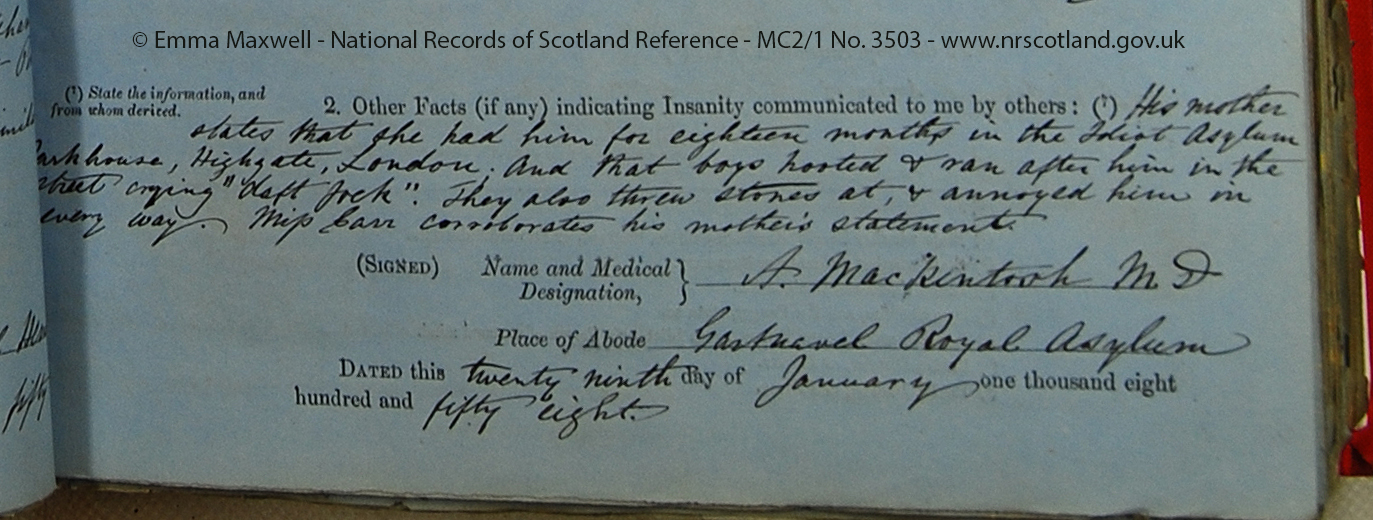 © Emma Maxwell - National Records of Scotland Reference - MC2/1 No. 3503 - www.nrscotland.gov.uk
(⁷) State the information, and
from whom derived.
2. Other Facts (if any) indicating Insanity communicated to me by others: (⁷) His mother
states that she had him for eighteen months, in the Idiot Asylum
Parkhouse, Highgate, London, And that boys hooted & ran after him in the
street crying "daft Jock". They also threw stones at, & annoyed him in
every way. Miss Carr corroborates his mother's statement.
(SIGNED) Name and Medical
Designation, } A. Mackintosh M.D
Place of Abode Gartnavel Royal Asylum
DATED this twenty ninth day of January one thousand eight
hundred and fifty eight.
fifty